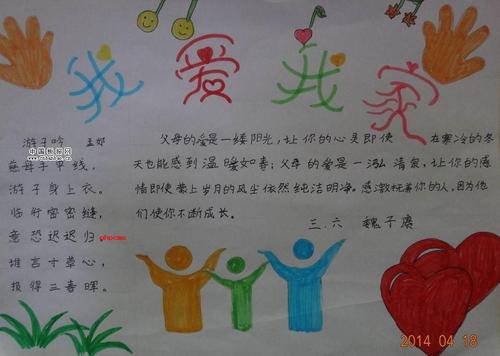 我爱我家
游子吟 孟郊
慈母手中线,
游子身上衣。
临行密密缝,
意恐迟迟归
谁言寸草心,
报得三春晖。
父母的爱是一缕阳光,让你的心灵即使 在寒冷的冬
天也能感到温暖如春;父母的爱是一泓清泉,让你的感
情即使蒙上岁月的风尘依然纯洁明净。感激抚养你的人,因为他
们使你不断成长。
三.六 魏子
phpcms
2014 04 18